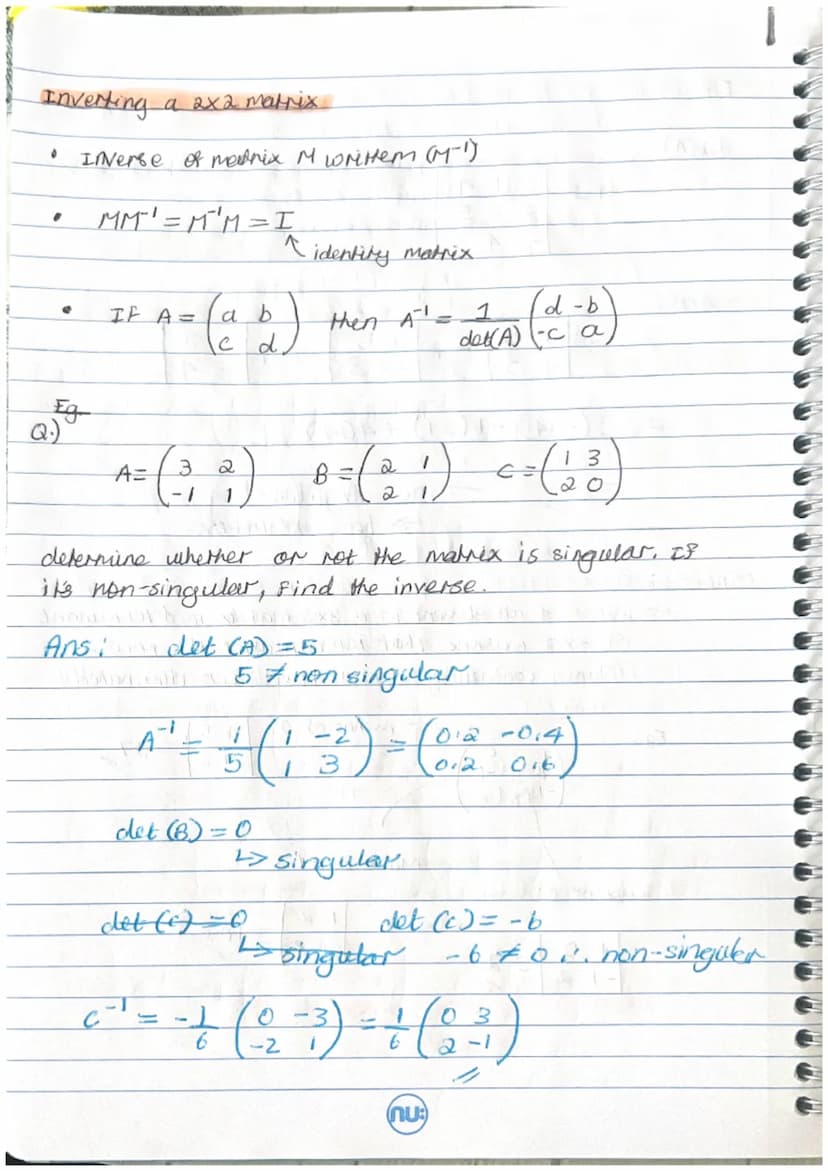 Inverting a 2x2 matrix
• Inverse of matrix M written (M⁻¹)
• MM⁻¹ = M⁻¹M = I
↑ identity matrix
• IF A = (a b
c d) then A⁻¹ = 1/det(A) (d -b
-c a)
Eg
Q.)
A = (3 2
-1 1) B = (2 1
2 1) C = (1 3
2 0)
determine whether or not the matrix is singular. If
its non-singular, find the inverse.
Ans: det (A) = 5
5 ≠ non singular
A⁻¹ = 1/5 (1 -2
1 3) = (0.2 -0.4
0.2 0.6)
det (B) = 0
↳ singular
det (C) = 0 det (C) = -6
↳ singular -6 ≠ 0 ∴ non-singular
C⁻¹ = -1/6 (0 -3
-2 1) = 1/6 (0 3
2 -1)
nu: